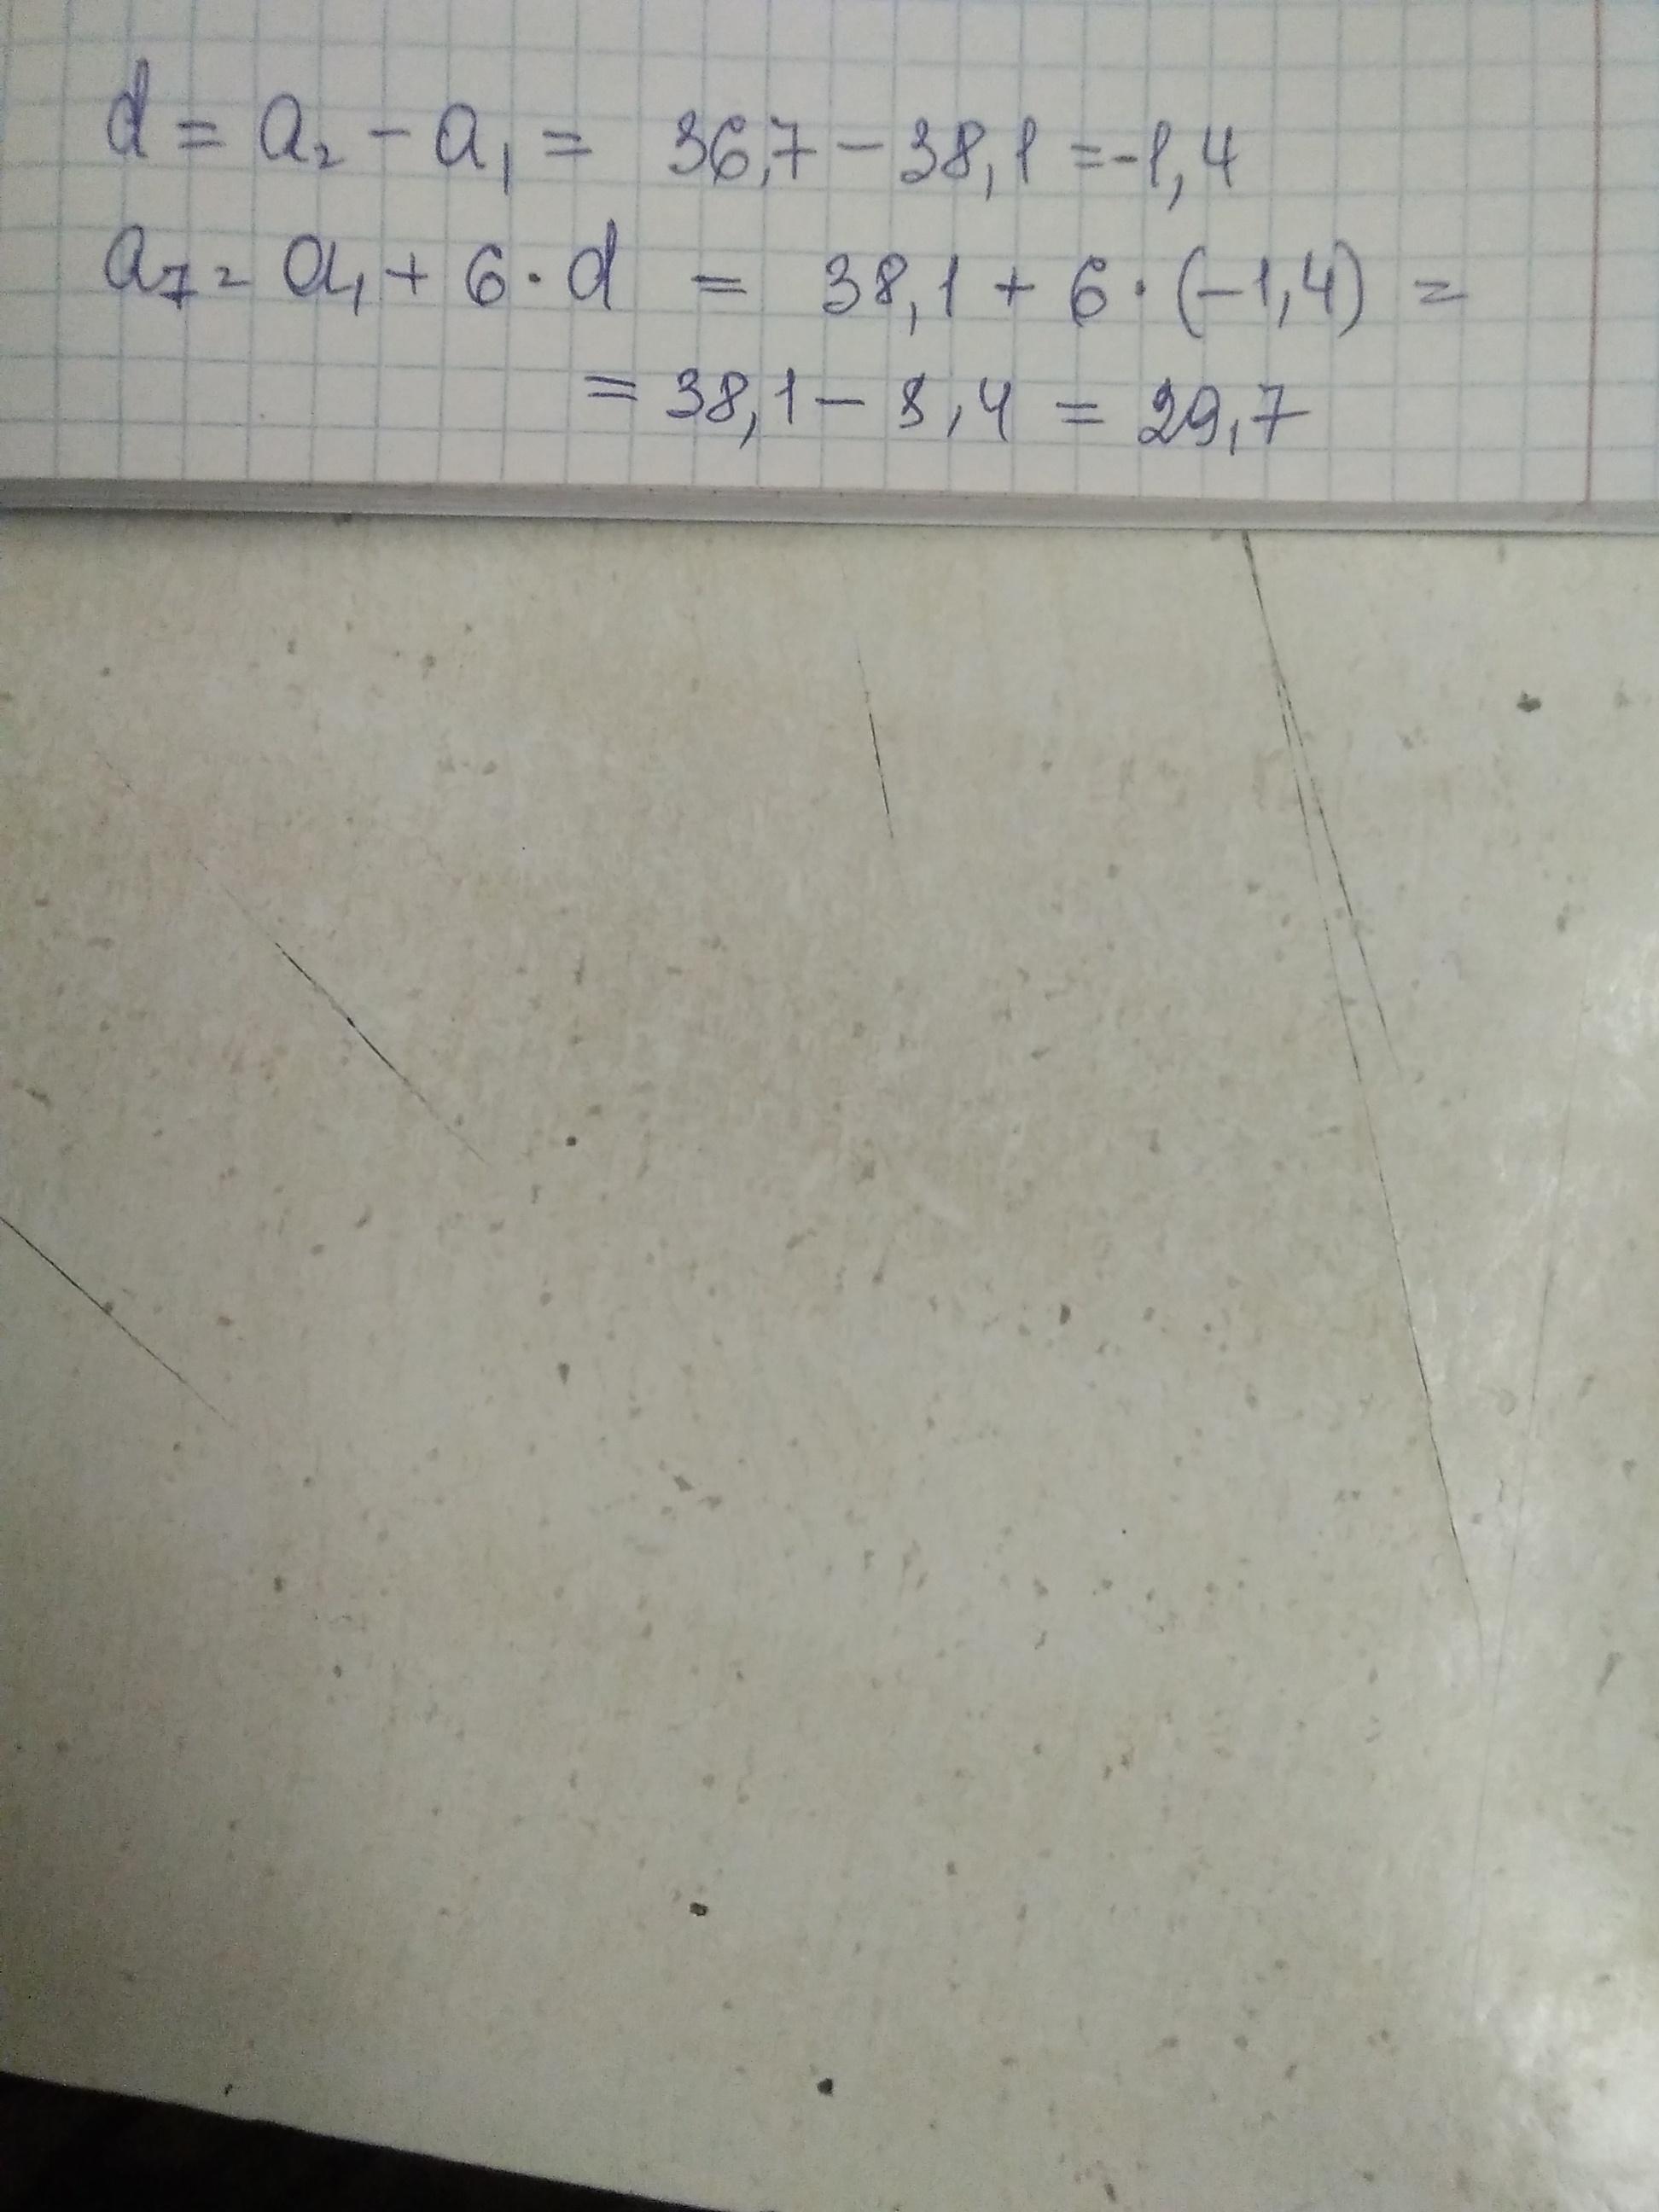 d = a₂ - a₁ = 36,7 - 38,1 = -1,4
a₇ = a₁ + 6 · d = 38,1 + 6 · (-1,4) =
= 38,1 - 8,4 = 29,7